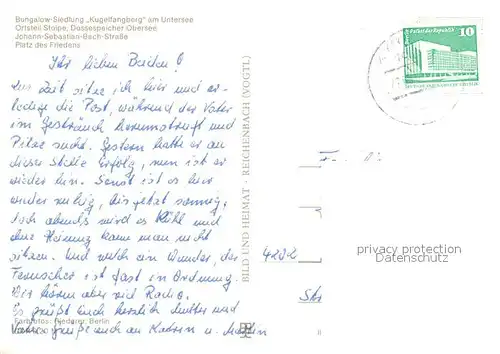 Bungalow-Siedlung „Kugelfangberg" am Untersee
Ortsteil Stolpe, Dossespeicher Obersee
Johann-Sebastian-Bach-Straße
Platz des Friedens
Ihr lieben Beiden!
Zur Zeit sitze ich hier und er-
ledige die Post, während der Vater
im Gesträuch herumstreift und
Pilze sucht. Gestern hatte er an
dieser Stelle Erfolg, nun ist er
wieder hin. Sonst ist es hier
ruhig, bis jetzt sonnig,
doch abends wird es kühl und
ohne Heizung kann man nicht
sitzen. Und welch ein Wunder, der
Fernseher ist fast in Ordnung.
Wir hören aber viel Radio.
Es grüßt Euch herzlich Mutter und
Vater grüßt auch an Katrin u.
Farbfotos: Riederer, Berlin
BILD UND HEIMAT · REICHENBACH (VOGTL)
10
Palast der Republik
DEUTSCHE DEMOKRATISCHE REPUBLIK
4202
Str
privacy protection
Datenschutz